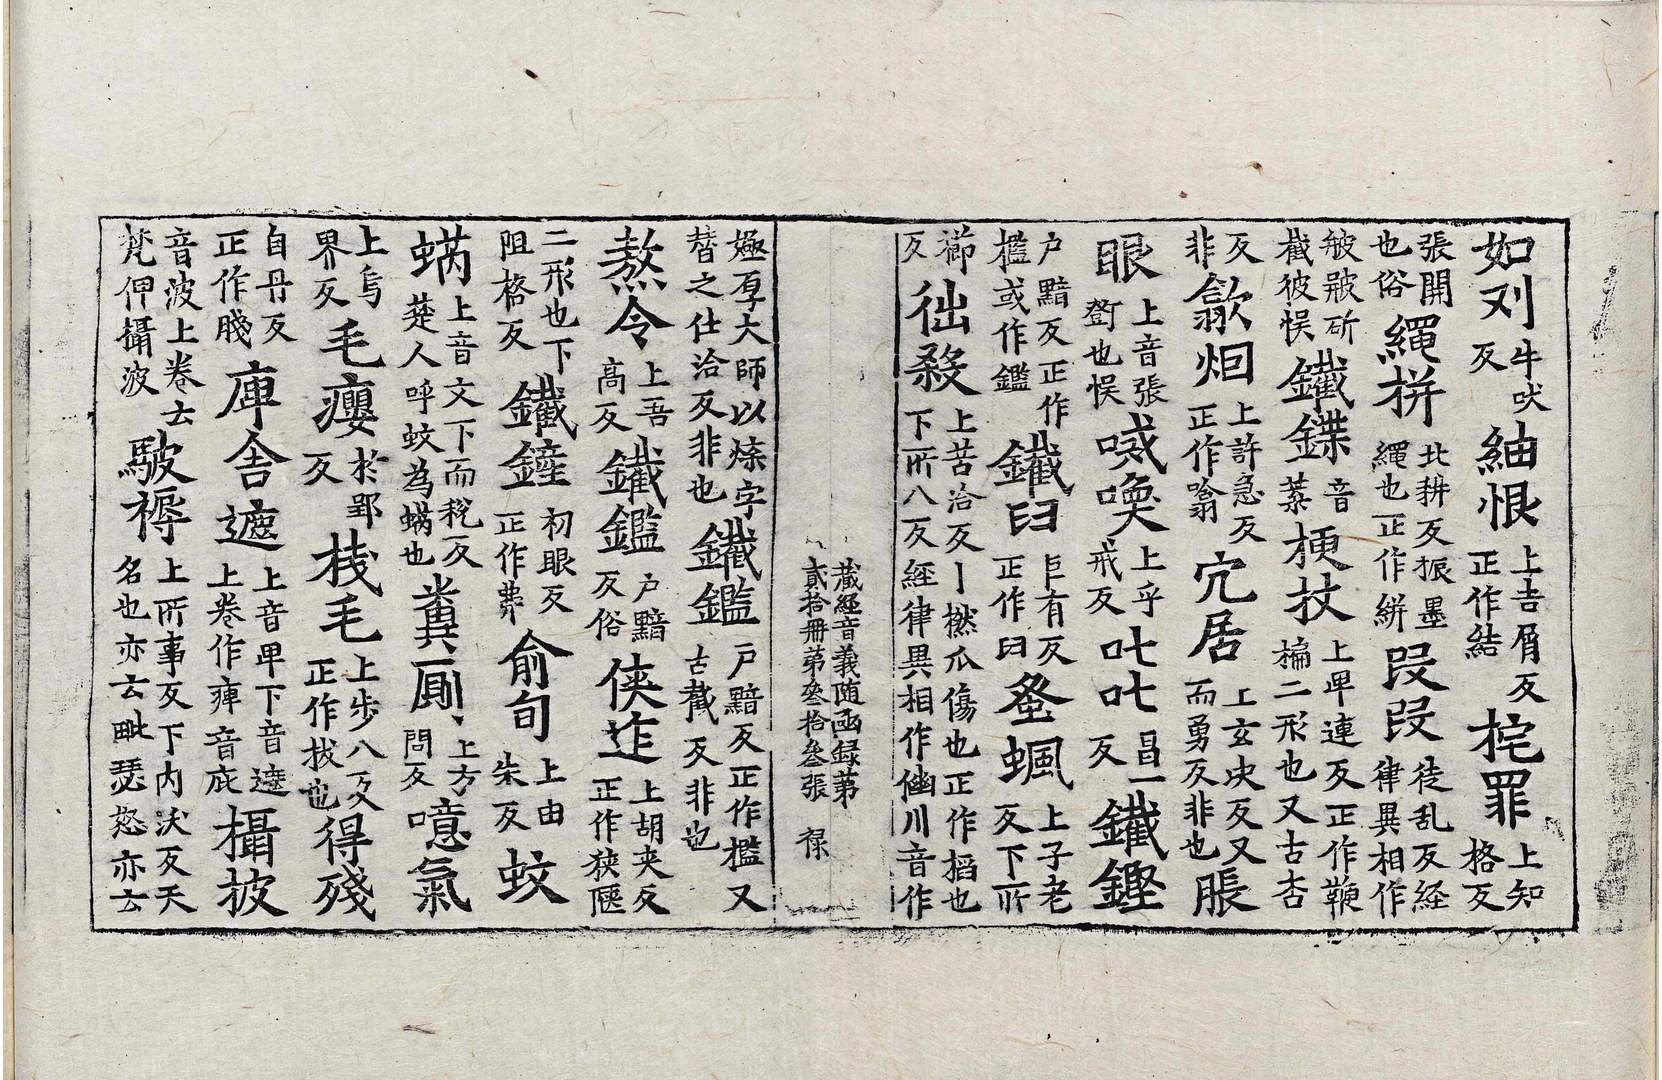 如刈牛吠反紬恨上吉屑反正作結挓罪上知格反
張開也俗繩拼北耕反振墨繩也正作絣段段徒乱反経律異相作
斫截彼悮鐵鍱音葉梗杖上卑連反正作鞭楄二形也又古杏
反非歙烟上許急反正作噏宂居上玄决反又而勇反非也脹
眼上音張䠀也悮喊喚上乎戒反吐吐昌一反鐵鏗
户黯反正作檻或作鑑鐵臼巨有反正作臼蚤上子老反下所
櫛反殺上苦洽反丨爪傷也正作搯也下所八反経律異相作川音作
蔵経音義随函録第
貳拾冊第叄拾叄張 禄
厚大師以字替之仕洽反非也鐵鑑户黯反正作檻又古反非也
熬令上吾高反鐵鑑户黯反俗侠迮上胡夾反正作狭陿
二形也下阻格反鐵鏟初眼反正作俞旬上由朱反蚊
螨上音文下而税反楚人呼蚊為螨也糞厠上方問反噫氣
上烏界反毛癭於郢反栈毛上步八反正作拔也得殘
自丹反正作賤庫舍遮上音卑下音遮上卷作痺音庇攝披
音波上卷云梵伸攝波駊褥上所事反下内沃反天名也亦云毗瑟怒亦云